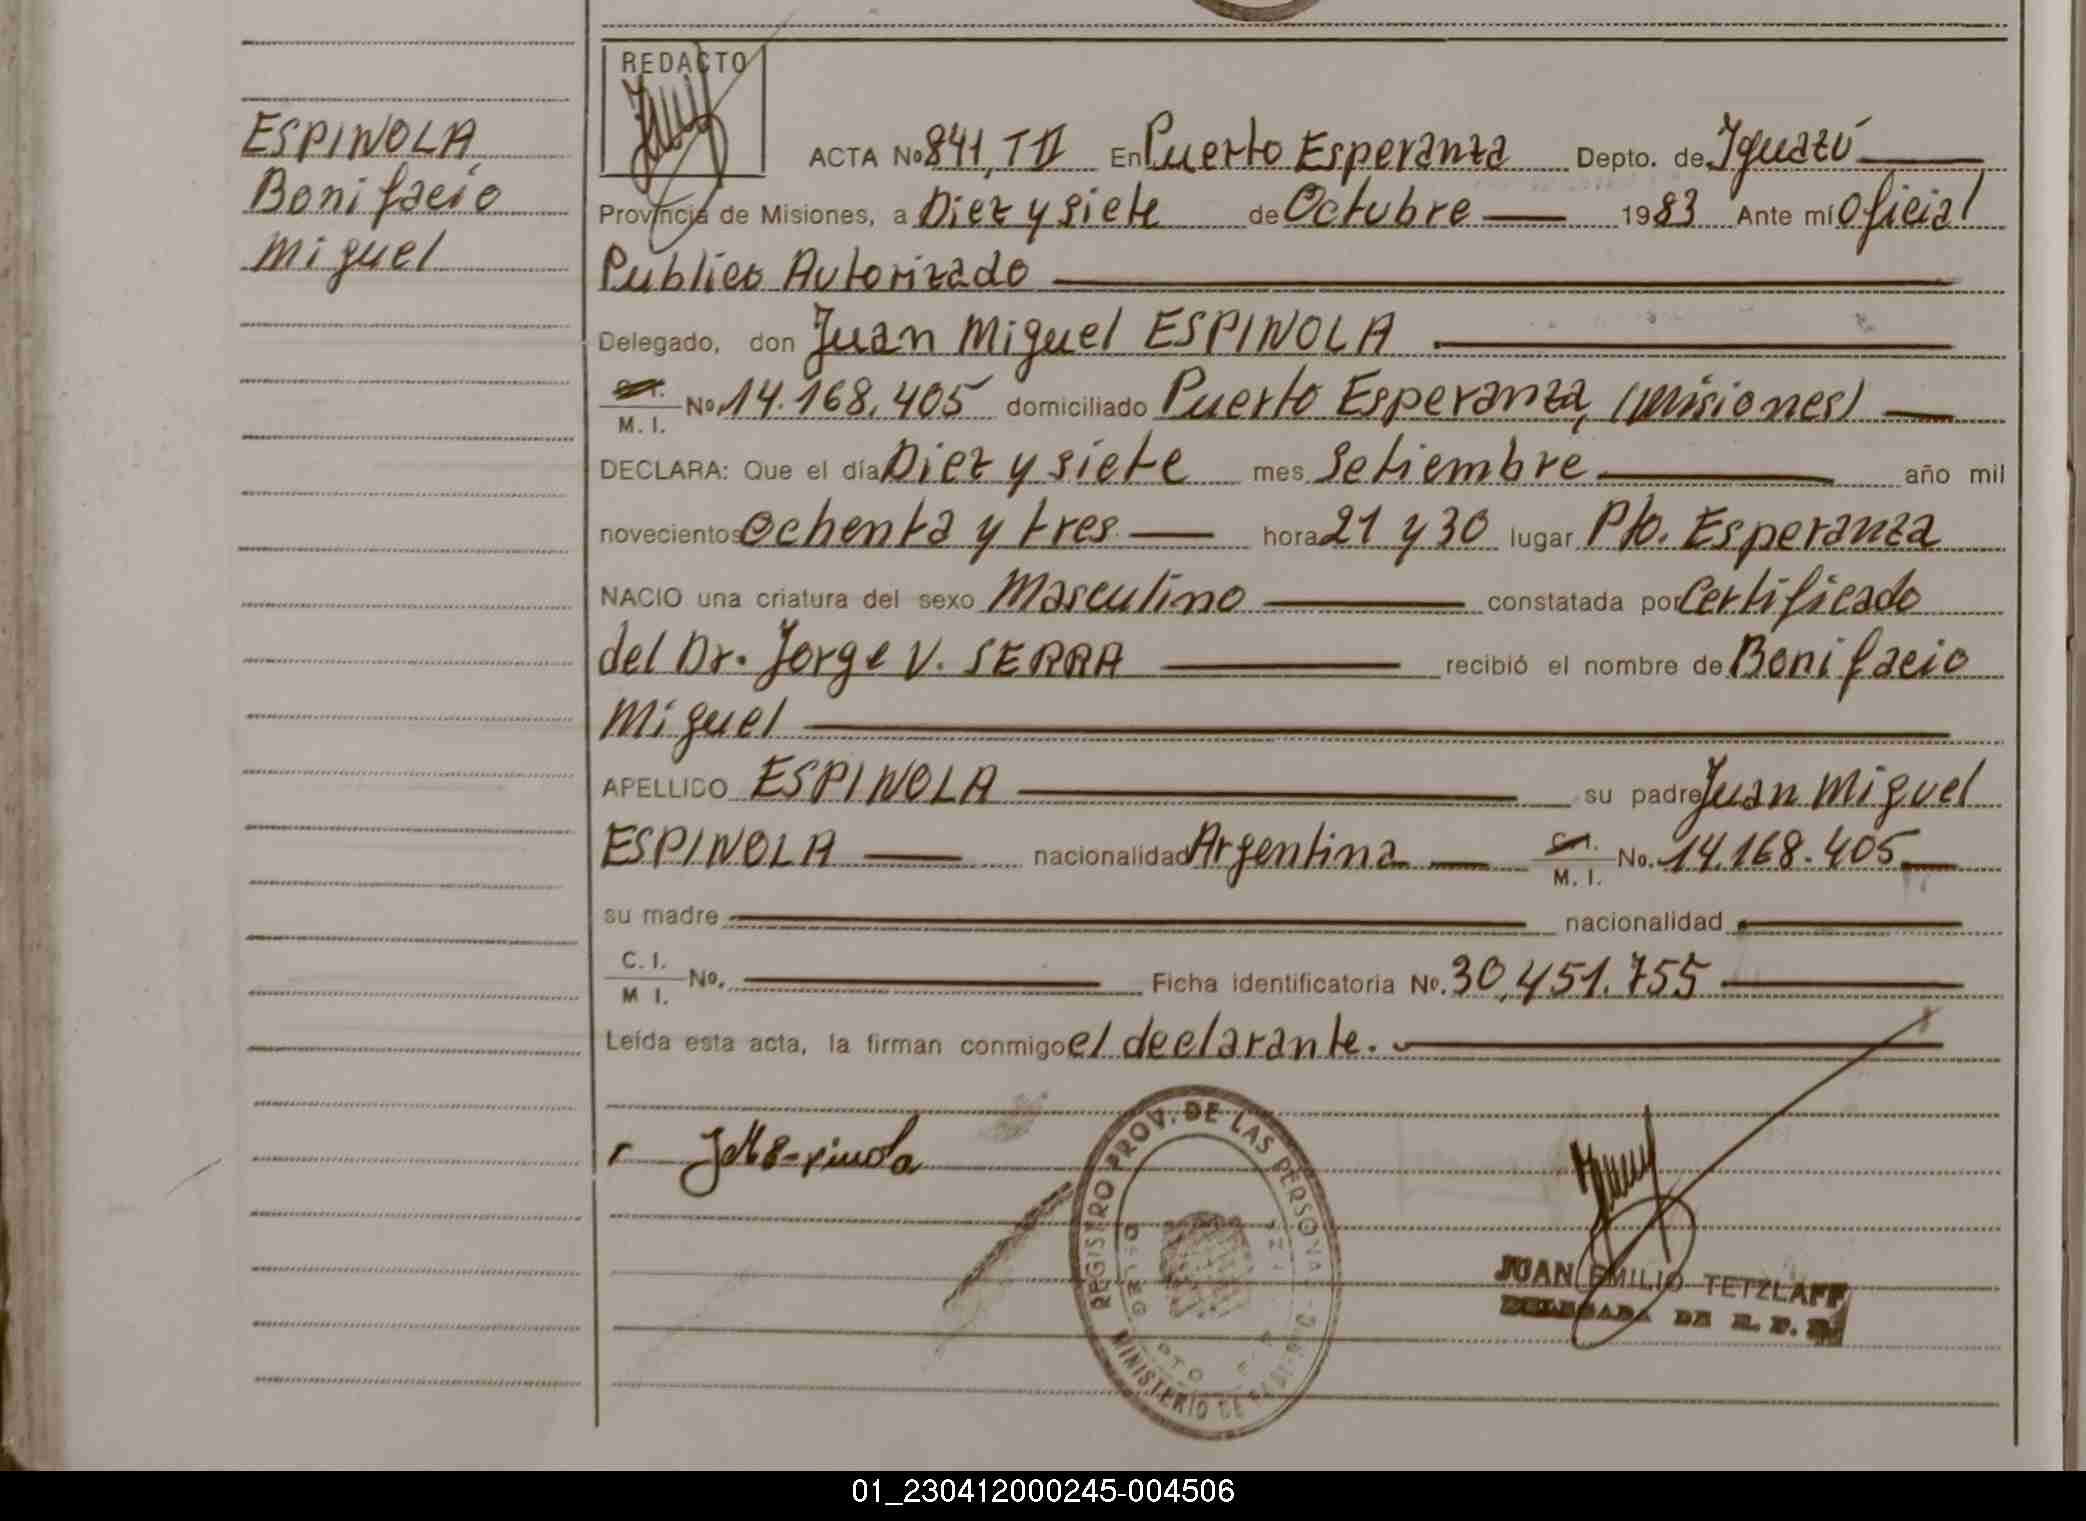 ESPINOLA
Bonifacio
Miguel
REDACTO
ACTA No 841, TII En Puerto Esperanza Depto. de Iguazú
Provincia de Misiones, a Diez y siete de Octubre 1983 Ante mí Oficial
Publico Autorizado
Delegado, don Juan Miguel ESPINOLA
C.I. M. I. No. 14.168.405 domiciliado Puerto Esperanza, (Misiones)
DECLARA: Que el día Diez y siete mes Setiembre año mil
novecientos Ochenta y tres hora 21 y 30 lugar Pto. Esperanza
NACIO una criatura del sexo Masculino constatada por Certificado
del Dr. Jorge V. SERRA recibió el nombre de Bonifacio
Miguel
APELLIDO ESPINOLA su padre Juan Miguel
ESPINOLA nacionalidad Argentina C.I. M. I. No. 14.168.405
su madre nacionalidad
C. I. M I. No. Ficha identificatoria No. 30.451.755
Leída esta acta, la firman conmigo el declarante.
REGISTRO PROV. DE LAS PERSONAS
MINISTERIO DE
JUAN EMILIO TETZLAFF
DELEGADA DE R. P. P.
01_230412000245-004506